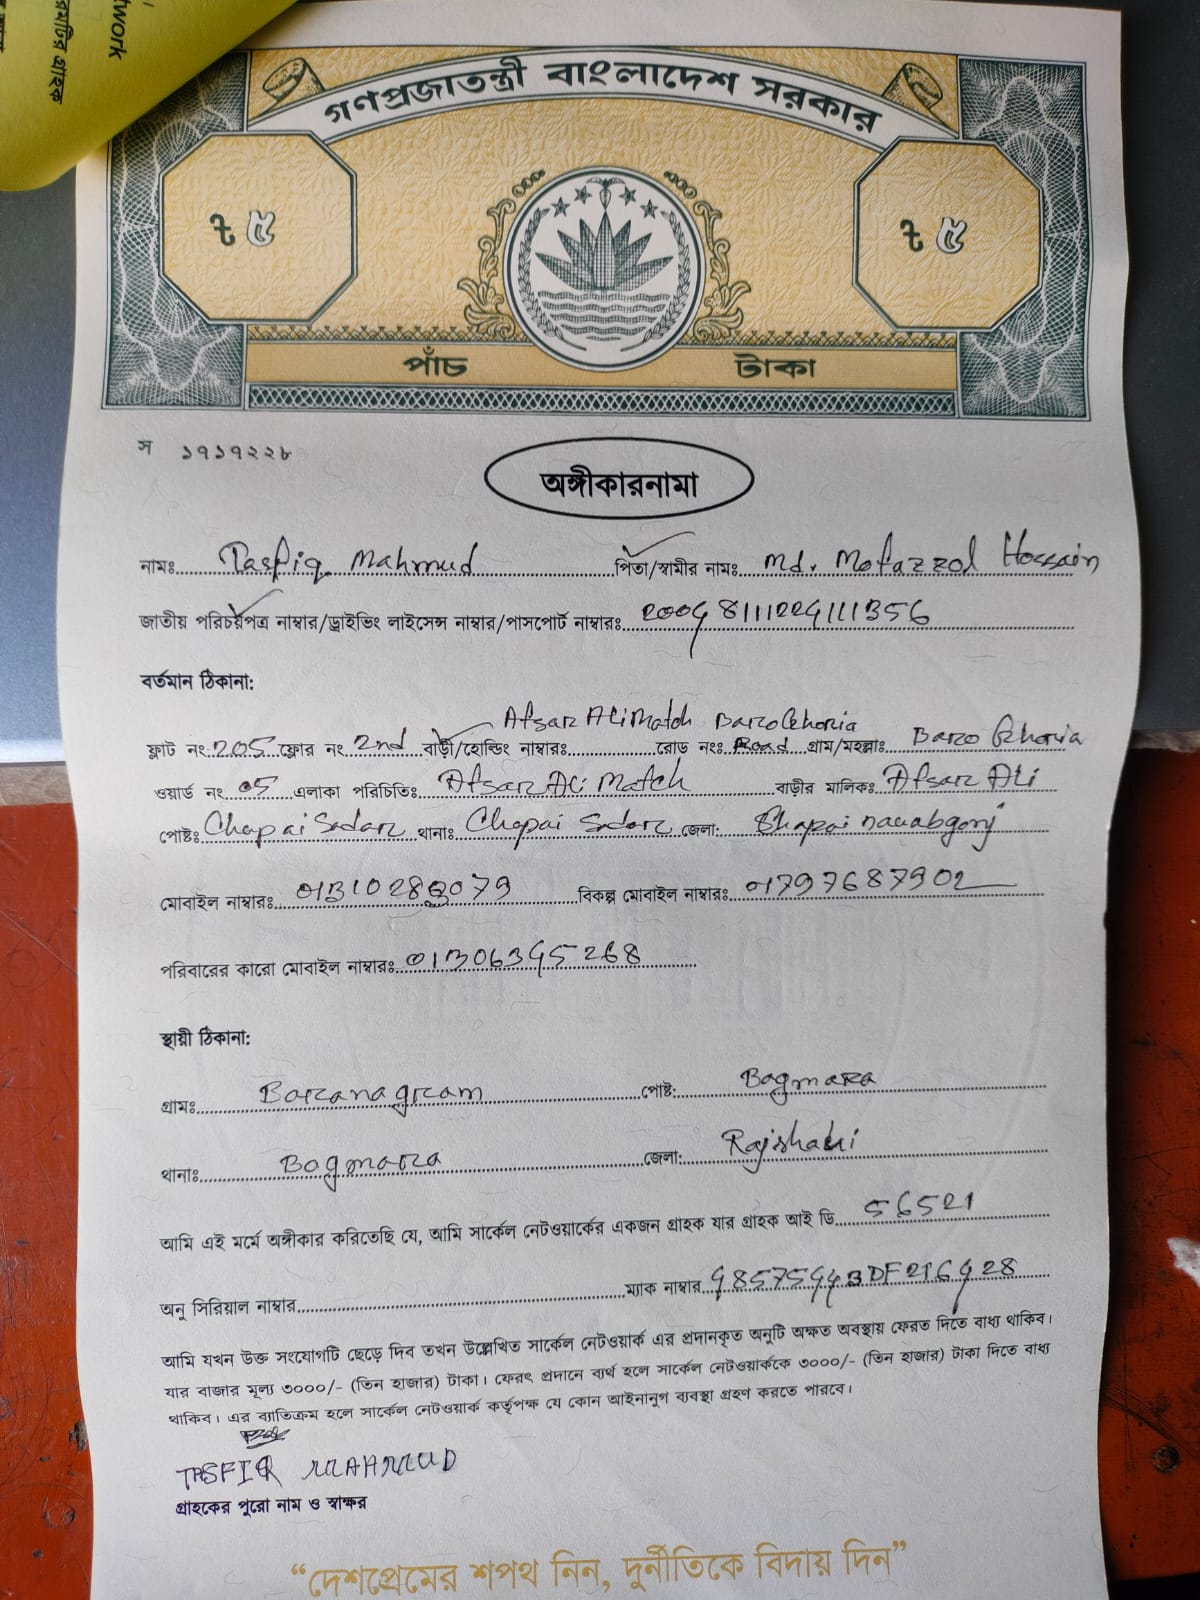 twork
রমটির গ্রাহক
গণপ্রজাতন্ত্রী বাংলাদেশ সরকার
৳ ৫ ৳ ৫
পাঁচ টাকা
স ১৭১৭২২৮
অঙ্গীকারনামা
নামঃ Tasfiq Mahmud পিতা/স্বামীর নামঃ Md. Mofazzol Hossain
জাতীয় পরিচয়পত্র নাম্বার/ড্রাইভিং লাইসেন্স নাম্বার/পাসপোর্ট নাম্বারঃ 20048111224111356
বর্তমান ঠিকানা:
Afsar Ali Match
ফ্লাট নং 205 ফ্লোর নং 2nd বাড়ী/হোল্ডিং নাম্বারঃ রোড নংঃ Road গ্রাম/মহল্লাঃ Baro
ওয়ার্ড নং 05 এলাকা পরিচিতিঃ Afsar Ali Match বাড়ীর মালিকঃ Afsar Ali
পোষ্টঃ Chapai Sadar থানাঃ Chapai Sadar জেলা: Chapai nawabgonj
মোবাইল নাম্বারঃ বিকল্প মোবাইল নাম্বারঃ 01797687902
পরিবারের কারো মোবাইল নাম্বারঃ 01306345268
স্থায়ী ঠিকানা:
গ্রামঃ পোষ্ট: Bagmara
থানাঃ Bagmara জেলা: Rajshahi
আমি এই মর্মে অঙ্গীকার করিতেছি যে, আমি সার্কেল নেটওয়ার্কের একজন গ্রাহক যার গ্রাহক আই ডি 56521
অনু সিরিয়াল নাম্বার ম্যাক নাম্বার 48575443DF216428
আমি যখন উক্ত সংযোগটি ছেড়ে দিব তখন উল্লেখিত সার্কেল নেটওয়ার্ক এর প্রদানকৃত অনুটি অক্ষত অবস্থায় ফেরত দিতে বাধ্য থাকিব।
যার বাজার মূল্য ৩০০০/- (তিন হাজার) টাকা। ফেরৎ প্রদানে ব্যর্থ হলে সার্কেল নেটওয়ার্ককে ৩০০০/- (তিন হাজার) টাকা দিতে বাধ্য
থাকিব। এর ব্যাতিক্রম হলে সার্কেল নেটওয়ার্ক কর্তৃপক্ষ যে কোন আইনানুগ ব্যবস্থা গ্রহণ করতে পারবে।
TASFIQ MAHMUD
গ্রাহকের পুরো নাম ও স্বাক্ষর
“দেশপ্রেমের শপথ নিন, দুর্নীতিকে বিদায় দিন”